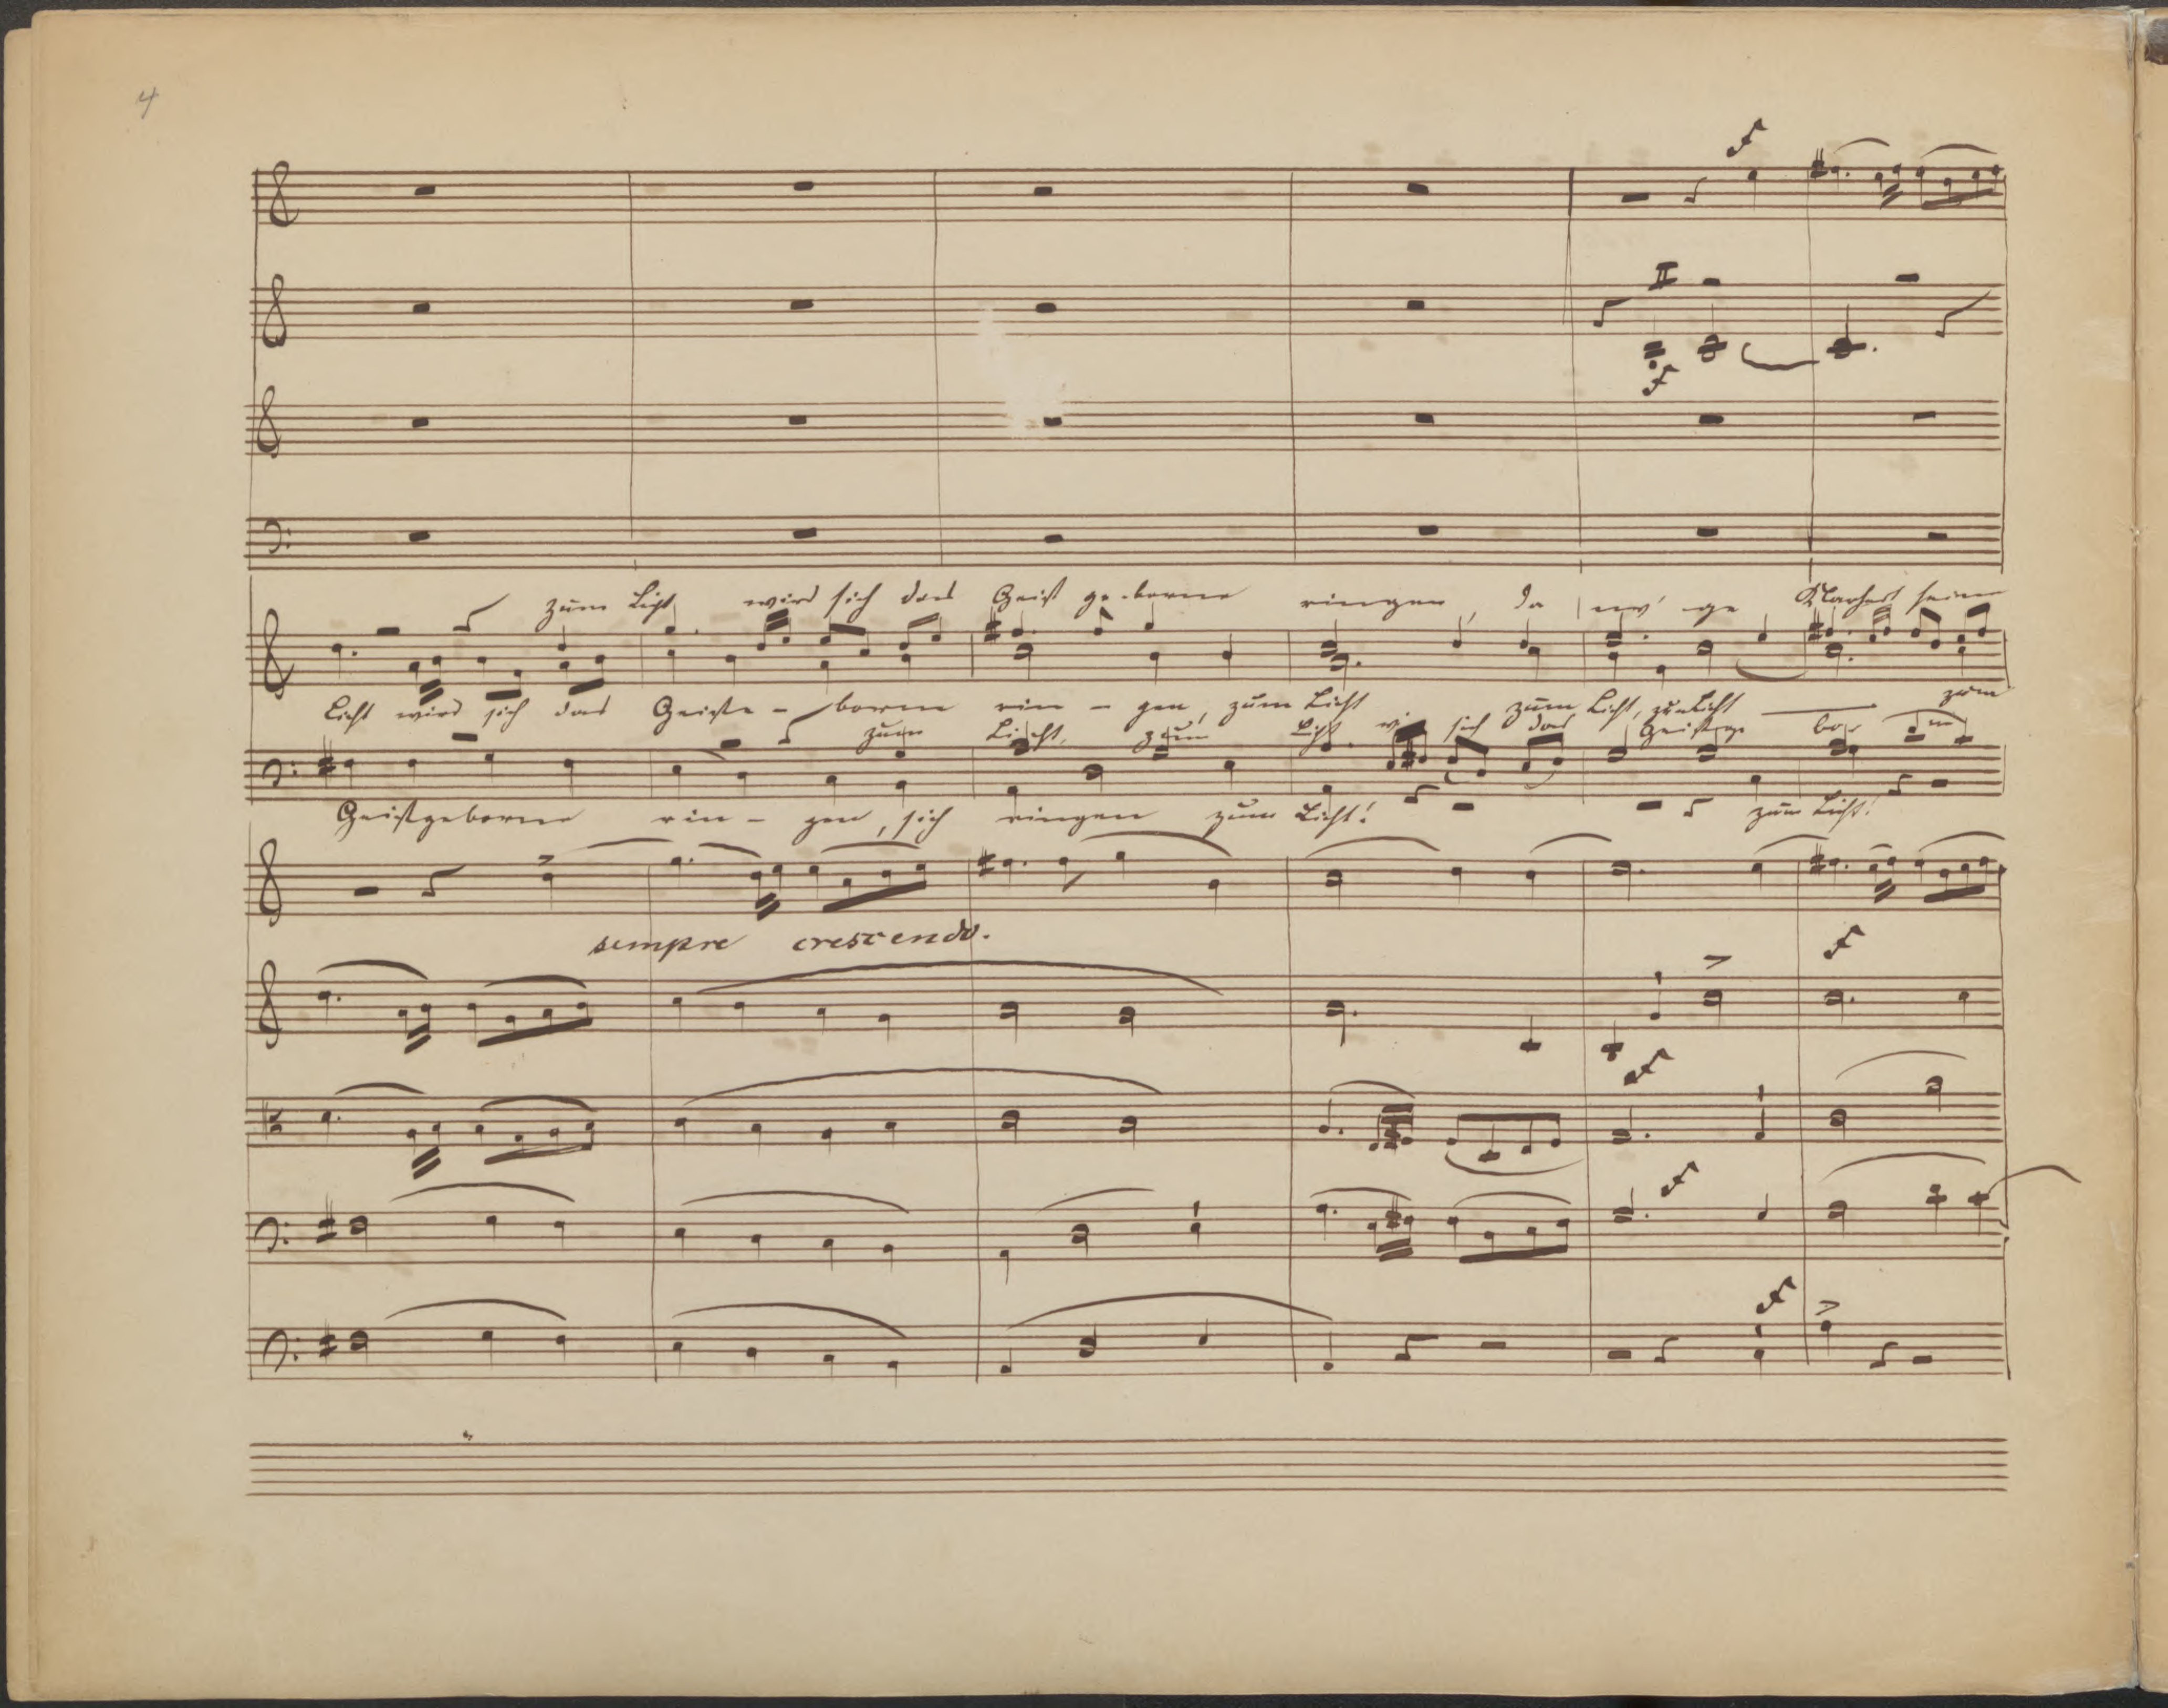 4
f
II
f
zum Licht wird sich das Geist ge-borne ringen, da Klarheit seine
Licht wird sich das Geistge-borne rin-gen, zum Licht zum Licht, zum Licht zum
zum Licht, zum Licht sich das Geistge bor
Geistgeborne rin-gen, sich ringen zum Licht! zum Licht!
sempre crescendo.
f
f
f
f